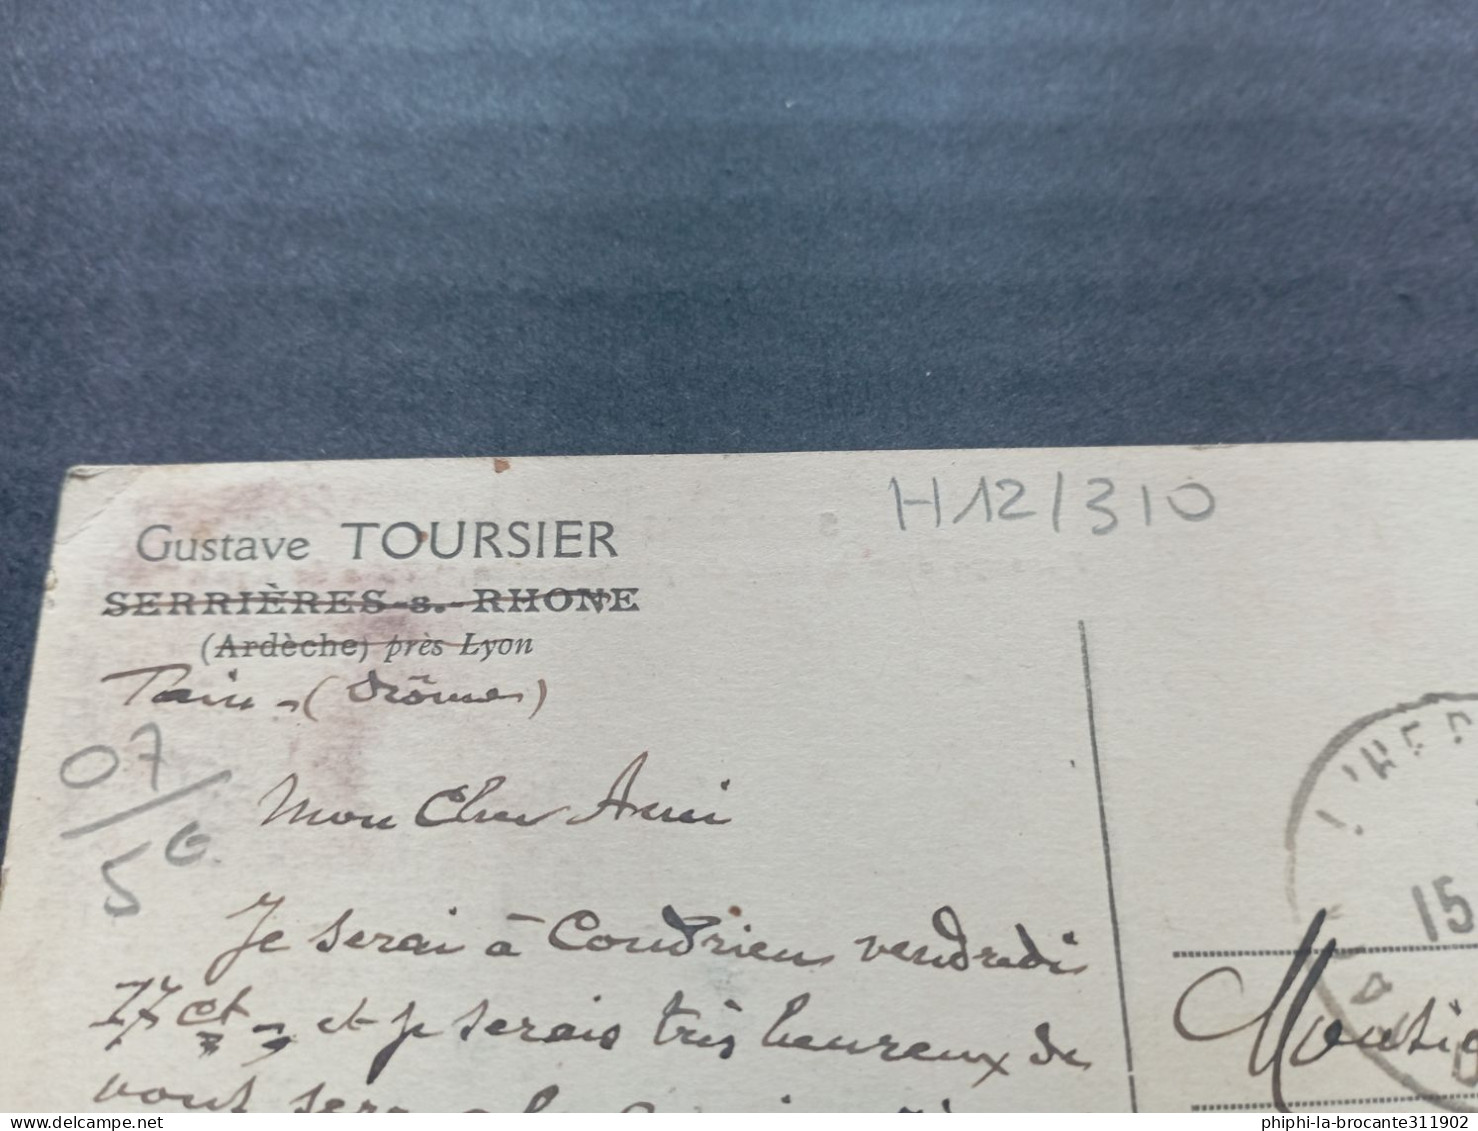 H12/310
Gustave TOURSIER
SERRIÈRES-s.-RHONE
(Ardèche) près Lyon
Tain - (Drôme)
07/5
Mon Cher Ami
Je serai à Condrieu vendredi
17 ct, et je serais très heureux de
vous serrer la
15
phiphi-la-brocante311902